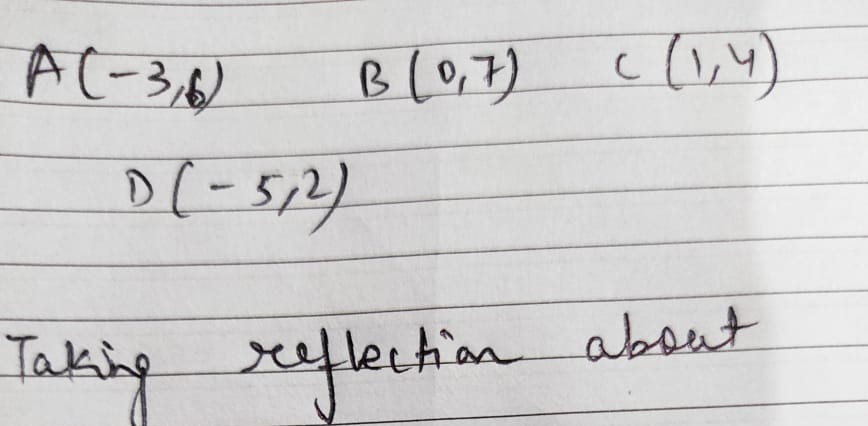 A(-3,6) B(0,7) C(1,4)
D(-5,2)
Taking reflection about